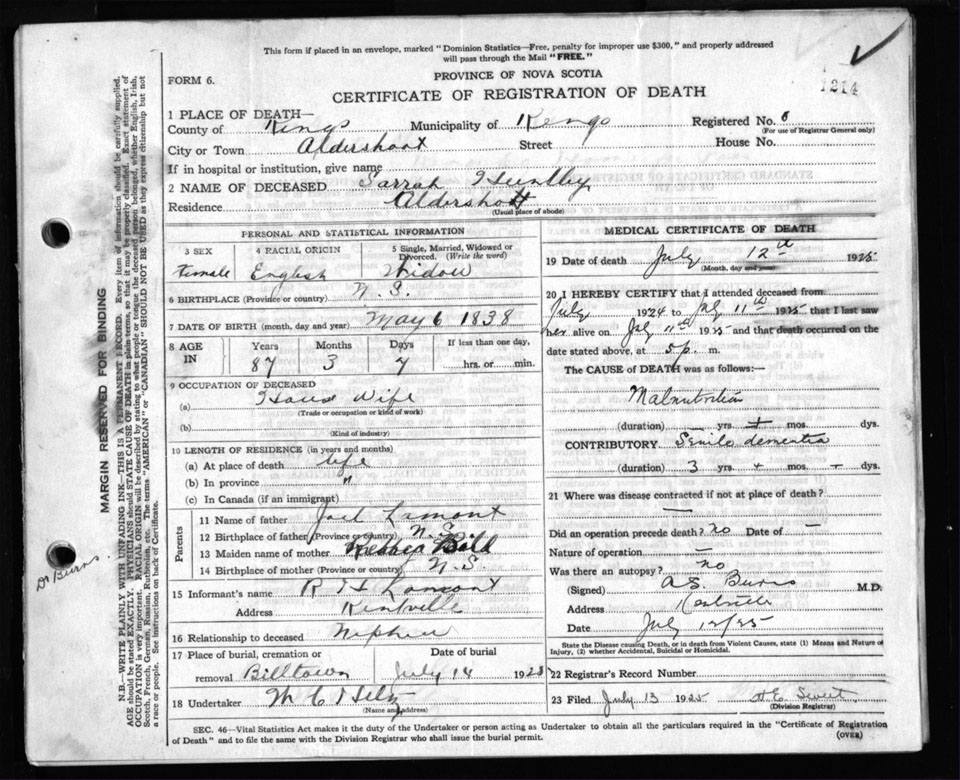 This form if placed in an envelope, marked "Dominion Statistics—Free, penalty for improper use $300," and properly addressed
will pass through the Mail "FREE."
1214
FORM 6.
PROVINCE OF NOVA SCOTIA
CERTIFICATE OF REGISTRATION OF DEATH
1 PLACE OF DEATH—
County of Kings Municipality of Kings Registered No. 8
(For use of Registrar General only)
City or Town Aldershoot Street House No.
If in hospital or institution, give name
2 NAME OF DECEASED Sarrah Huntley
Residence Aldershott
(Usual place of abode)
PERSONAL AND STATISTICAL INFORMATION
3 SEX 4 RACIAL ORIGIN 5 Single, Married, Widowed or Divorced. (Write the word)
Female English Widow
6 BIRTHPLACE (Province or country) N.S.
7 DATE OF BIRTH (month, day and year) May 6 1838
8 AGE IN Years Months Days If less than one day,
87 3 7 hrs. or min.
9 OCCUPATION OF DECEASED
(a) House Wife
(Trade or occupation or kind of work)
(b)
(Kind of industry)
10 LENGTH OF RESIDENCE (in years and months)
(a) At place of death life
(b) In province "
(c) In Canada (if an immigrant)
Parents
11 Name of father Joel Lamont
12 Birthplace of father (Province or country) N.S.
13 Maiden name of mother
14 Birthplace of mother (Province or country) N.S.
15 Informant's name R H Lamont
Address Kentville
16 Relationship to deceased Nephew
17 Place of burial, cremation or removal Date of burial
Billtown July 14 1925
18 Undertaker W C Hiltz
(Name and address)
MEDICAL CERTIFICATE OF DEATH
19 Date of death July 12th 1925
(Month, day and year)
20 I HEREBY CERTIFY that I attended deceased from
July 1924 to July 11th 1925 that I last saw
her alive on July 11th 1925 and that death occurred on
date stated above, at 5 p. m.
The CAUSE of DEATH was as follows:
Malnutrition
(duration) yrs. mos. dys.
CONTRIBUTORY Senile dementia
(duration) 3 yrs. + mos. — dys.
21 Where was disease contracted if not at place of death?
—
Did an operation precede death? no Date of —
Nature of operation —
Was there an autopsy? no
(Signed) A.S. Burns M.D.
Address Kentville
Date July 12/25
State the Disease causing Death, or in death from Violent Causes, state (1) Means and Nature of
Injury, (2) whether Accidental, Suicidal or Homicidal.
22 Registrar's Record Number
23 Filed July 13 1925
(Division Registrar)
SEC. 46—Vital Statistics Act makes it the duty of the Undertaker or person acting as Undertaker to obtain all the particulars required in the "Certificate of Registration
of Death" and to file the same with the Division Registrar who shall issue the burial permit.
(OVER)
MARGIN RESERVED FOR BINDING
N.B.—WRITE PLAINLY WITH UNFADING INK—THIS IS A PERMANENT RECORD. Every item of information should be carefully supplied.
AGE should be stated EXACTLY. PHYSICIANS should STATE CAUSE OF DEATH in plain terms, so that it may be properly classified. Exact statement of
OCCUPATION is very important. RACIAL ORIGIN will be described by stating to what people or tongue the deceased person belonged, whether English, Irish,
Scotch, French, German, Russian, Ruthenian, etc. The terms "AMERICAN" or "CANADIAN" SHOULD NOT BE USED as they express citizenship but not
a race or people. See instructions on back of Certificate.
Dr Burns